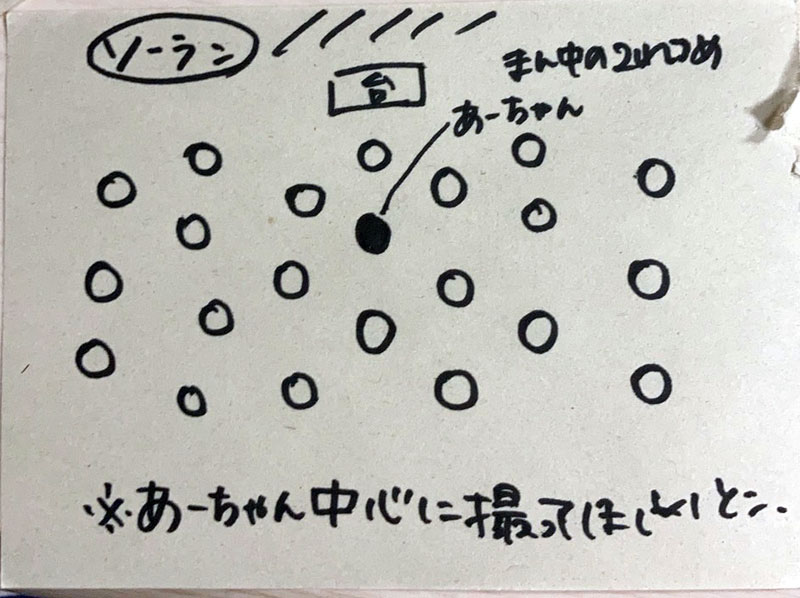 ソーラン
台
まん中の2れつめ
あーちゃん
※あーちゃん中心に撮ってほしいとこ.